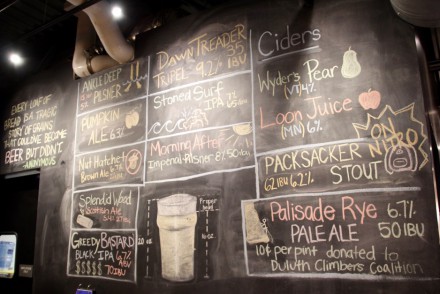 EVERY LOAF OF
BREAD IS A TRAGIC
STORY OF GRAINS
THAT COULD'VE BECOME
BEER BUT DIDN'T.
-ANONYMOUS
ANKLE DEEP
PILSNER
PUMPKIN
ALE
Nut Hatchet
Brown Ale
Splendid Wood
Scottish Ale
GREEDY BASTARD
BLACK IPA 6.7%
ABV
$$$$$ 70 IBU
DAWN TREADER
TRIPEL 9.2% 35
IBU
Stoned Surf
IPA
Morning After
Imperial Pilsner 8% 50 IBU
Proper
20 oz
16 oz
Ciders
Wyder's Pear
(VT) 4%
Loon Juice
(MN) 6%
PACKSACKER
STOUT
62 IBU 6.2%
ON
NITRO
Palisade Rye 6.7%
PALE ALE 50 IBU
10¢ per pint donated to
Duluth Climbers Coalition